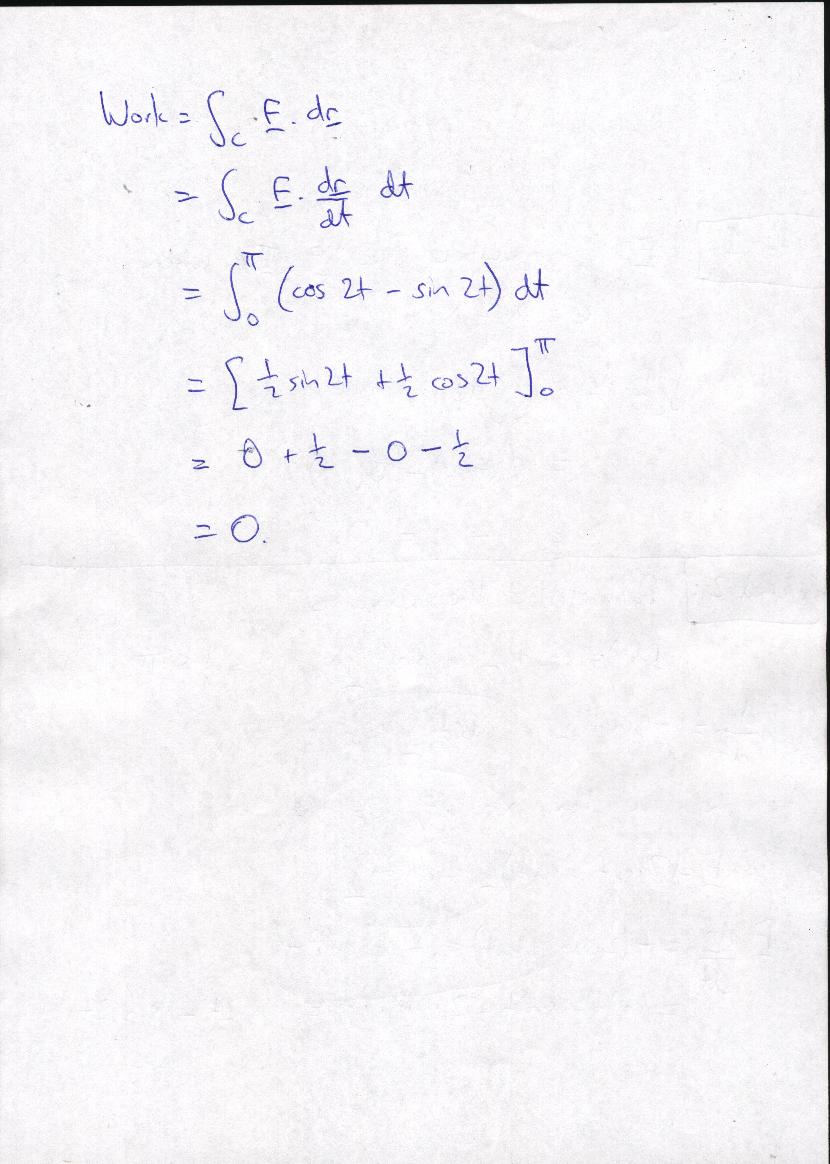 Work = ∫_C F . dr
= ∫_C F . dr/dt dt
= ∫_0^π (cos 2t - sin 2t) dt
= [ 1/2 sin 2t + 1/2 cos 2t ]_0^π
= 0 + 1/2 - 0 - 1/2
= 0.